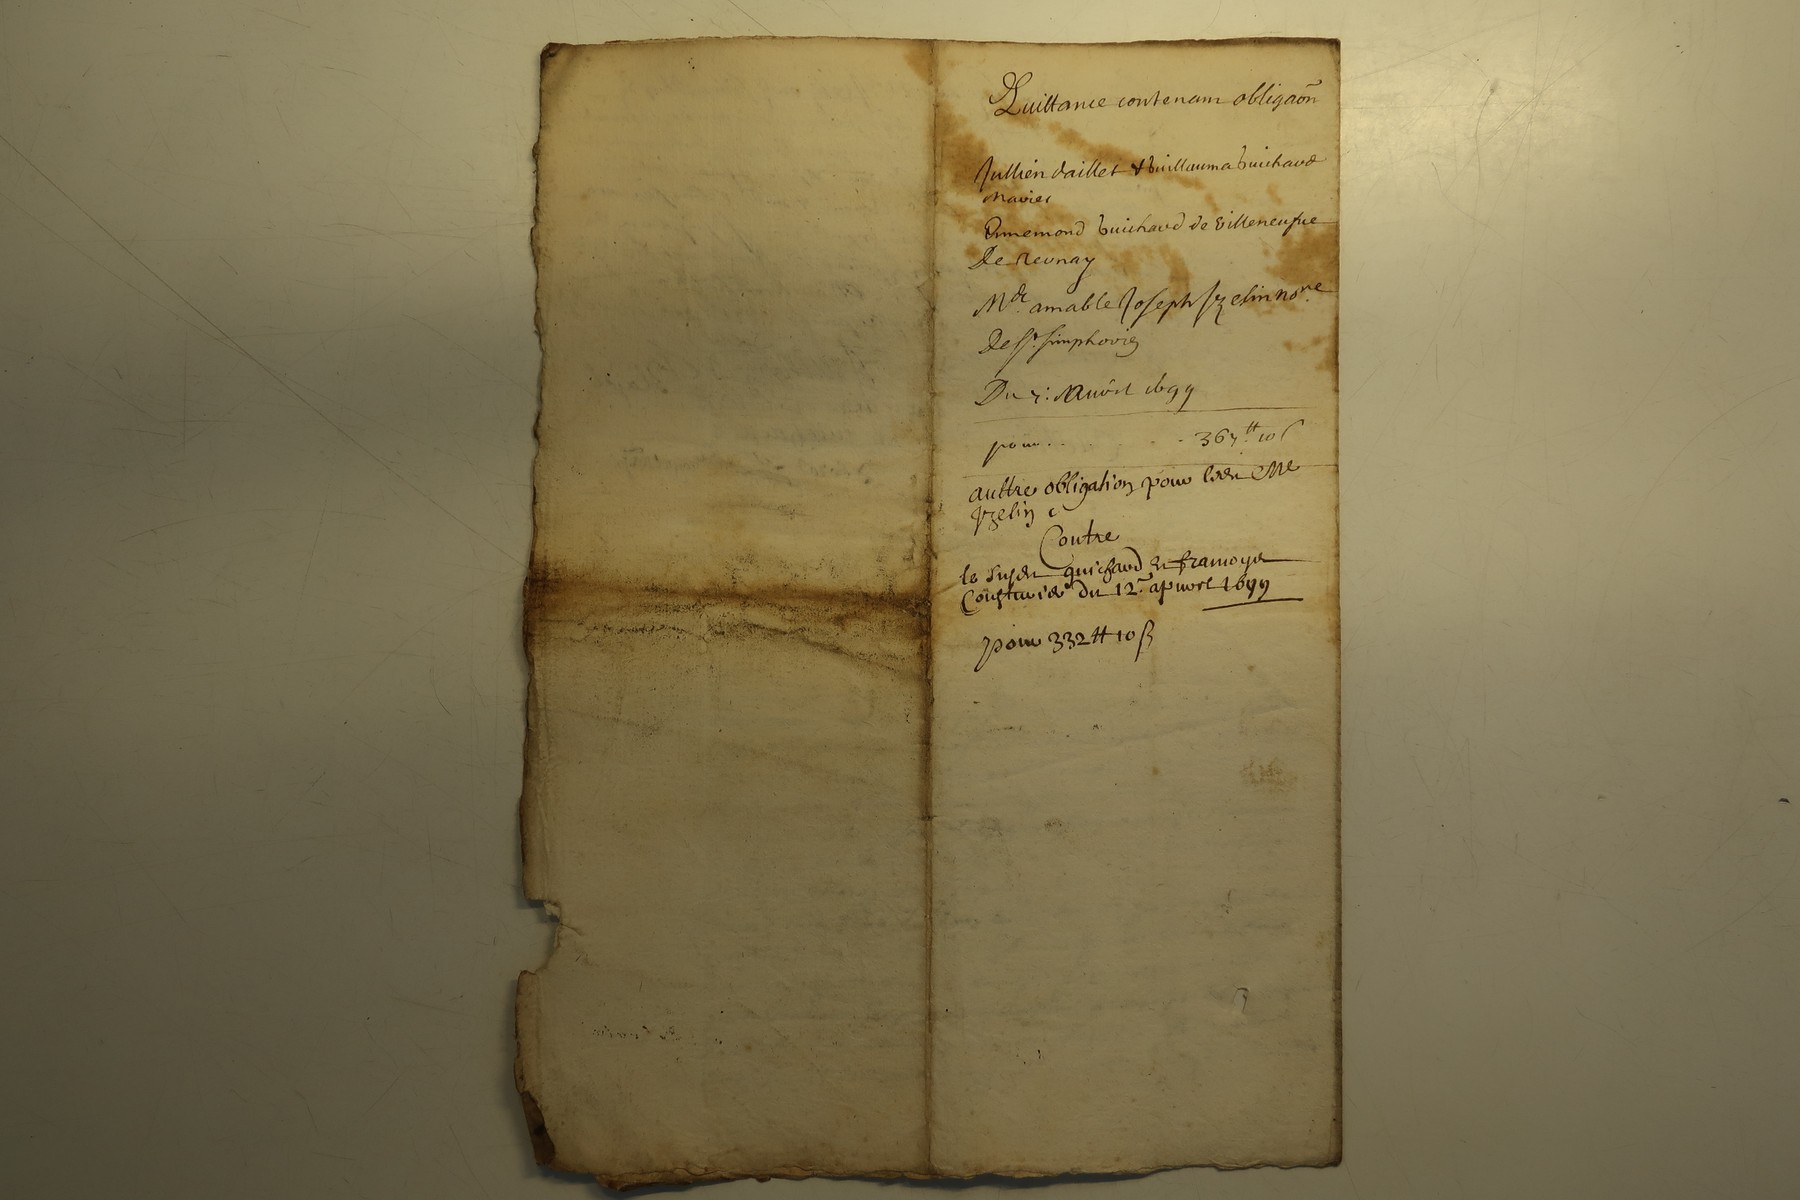 Quittance contenant obligaõn
Jullien Caillet & Guillauma Guichard
Mariés
Ennemond Guichard de Villeneufve
De
Mre. amable Joseph Jzelin nore.
De St. Simphorien
Du 7: 1699
pour . . . . 367 ₶ 10 s
auttre obligation pour ledit Me
Jzelin
Contre
le susdit guichard et
Cousturier du 12e. apvril 1699
pour 332 ₶ 10 ß